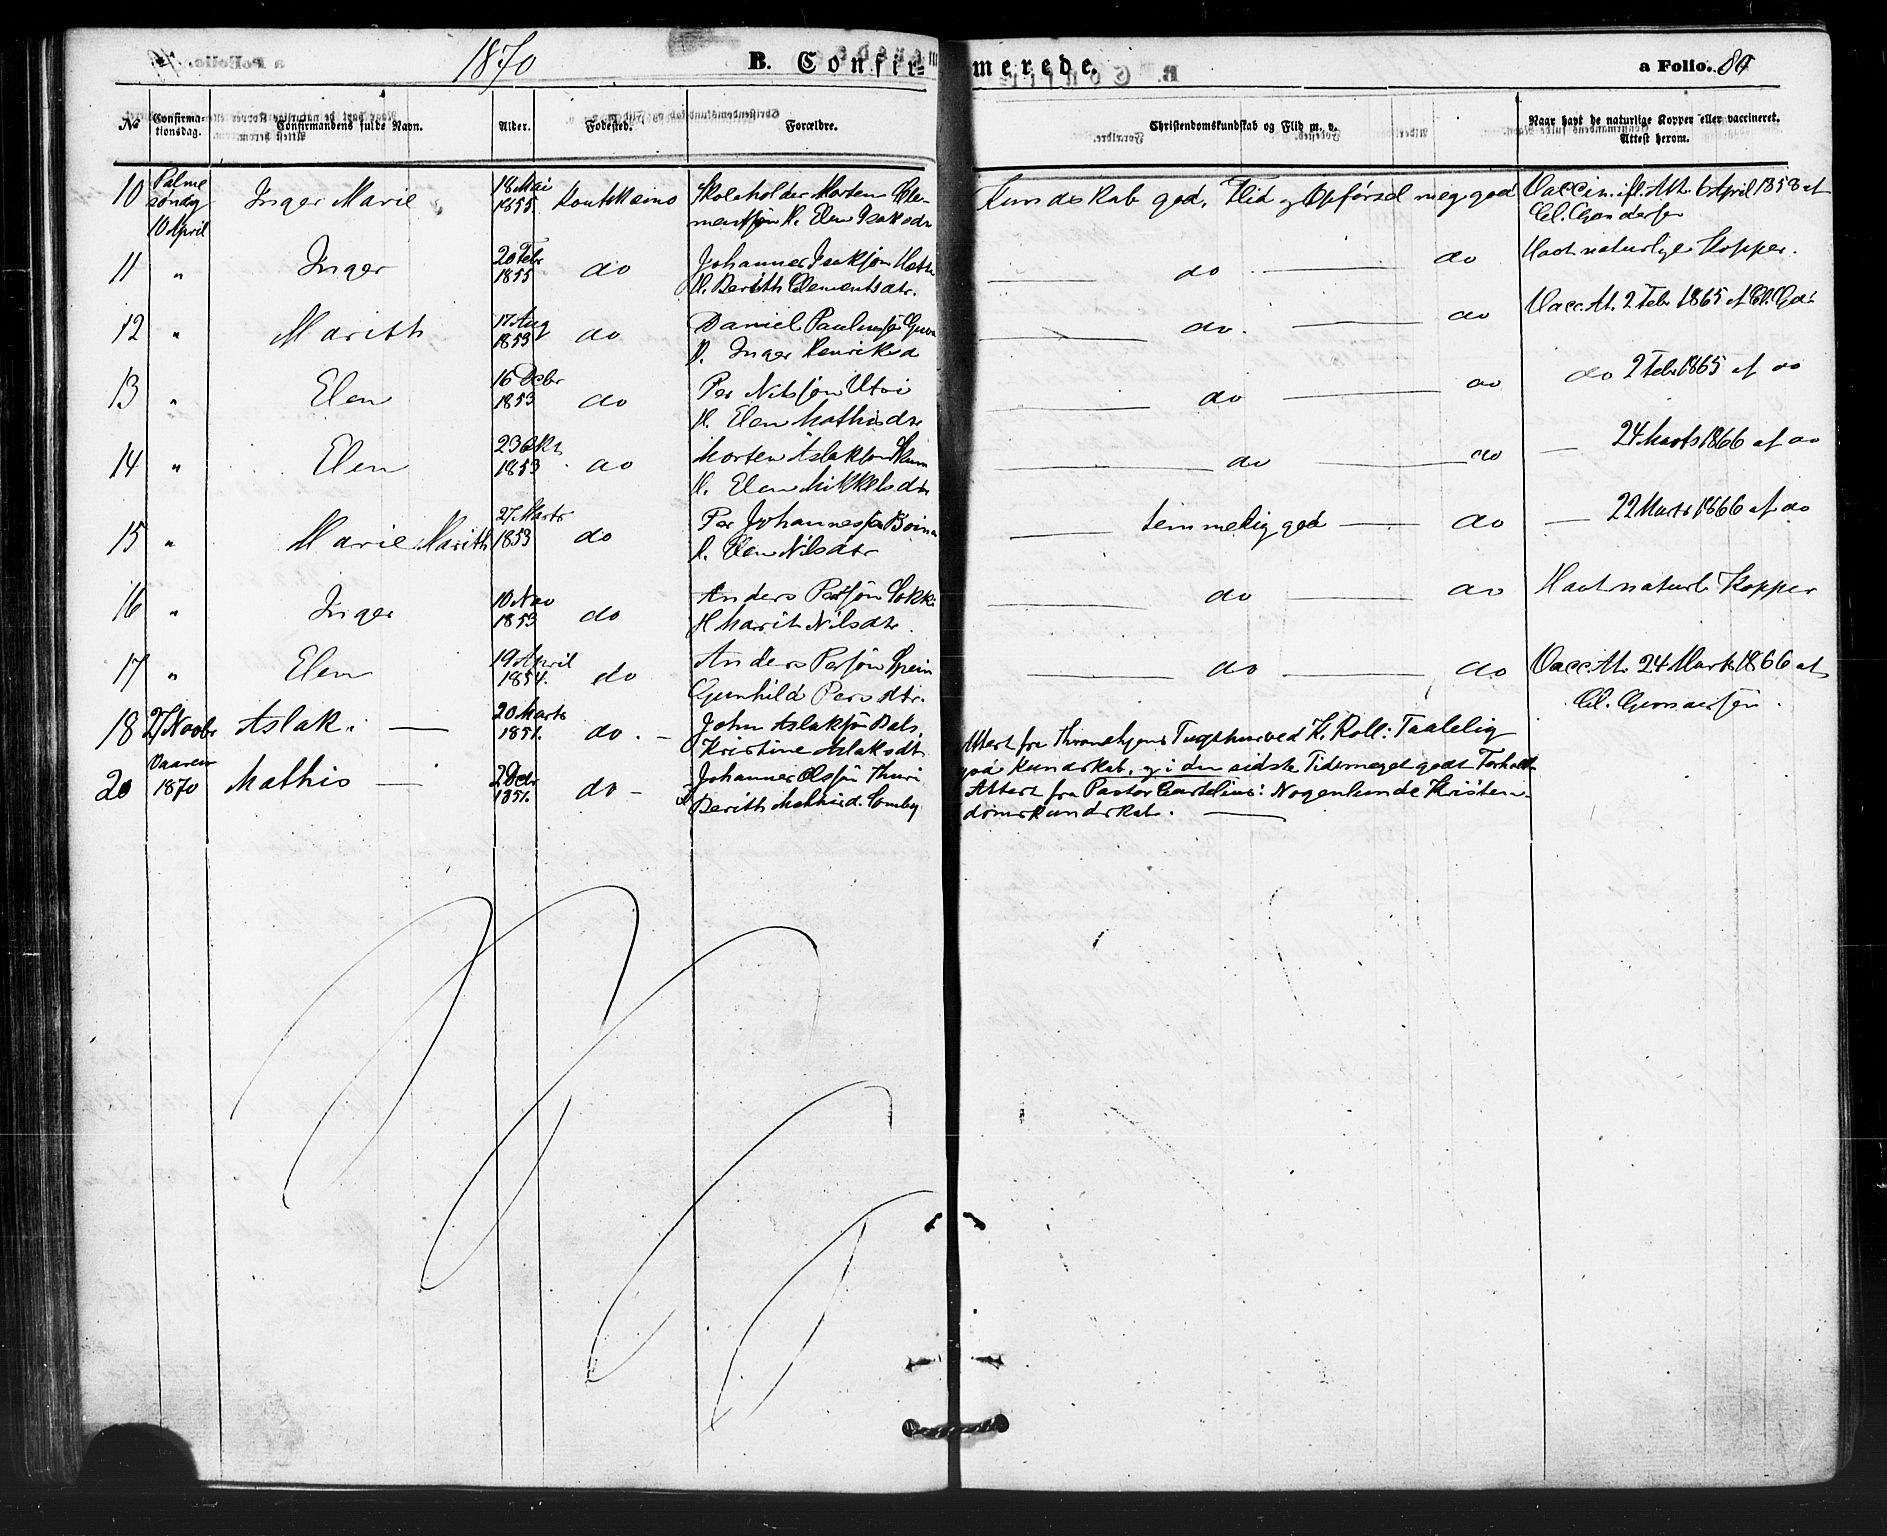 1870 B. Confirmerede. a Folio. 80
No Confirmationsdag. Confirmandens fulde Navn. Alder. Fødested. Forældre. Christendomskundskab og Flid m. v. Naar havt de naturlige Kopper eller vaccineret. Attest herom.
10 Palmesøndag 10 April Inger Marie 18 Mai 1855 Koutokeino Skoleholder Morten Clementsøn H. Elen Isaksdr Kundskab god, Flid og Opførsel meg. god Vaccin. if. Att. 6 April 1858 af Cl. Gundersen
11 " Inger 20 Febr 1855 do Johannes Isaksøn Hætta H. Berith Clementsdtr. do do Havt naturlige Kopper.
12 " Marith 17 Aug 1853 do Daniel Paulussøn H. Inger Henriksd do. do Vacc. At. 2 Feb 1865 af Cl. Gd:
13 " Elen 16 Debr 1853 do Per Nilsøn Utsi H. Elen Mathisdtr do do do 2 Feb 1865 af do
14 " Elen 23 Okt 1853 do Morten Aslaksøn H. Elen Mikkelsdtr do do 24 Marts 1866 af do
15 " Marie Marith 27 Marts 1853 do Per Johannessøn H. Elen Nilsdtr temmelig god do 22 Marts 1866 af do
16 " Inger 10 Nov 1853 do Anders Persøn Sokki H Marit Nilsdtr. do do Havt naturl. Kopper
17 " Elen 19 April 1854. do Anders Persøn Spein Gunhild Persdtr. do do Vacc. At. 24 Marts 1866 af Cl. Gundersen.
18 27 Novbr Aslak. 20 Marts 1851. do. John Aslaksøn Bals. Kristine Aslaksdt Attest fra Throndhjems Tugthus ved K. Roll: Taalelig god Kundskab, og i den sidste Tid meget godt Forhold
20 Vaaren 1870 Mathis 2 Debr 1851. do Johannes Olsøn Thuri H Berith Mathisd. Somby Attest fra Pastor Gurtelius: Nogenlunde Kristendomskundskab.